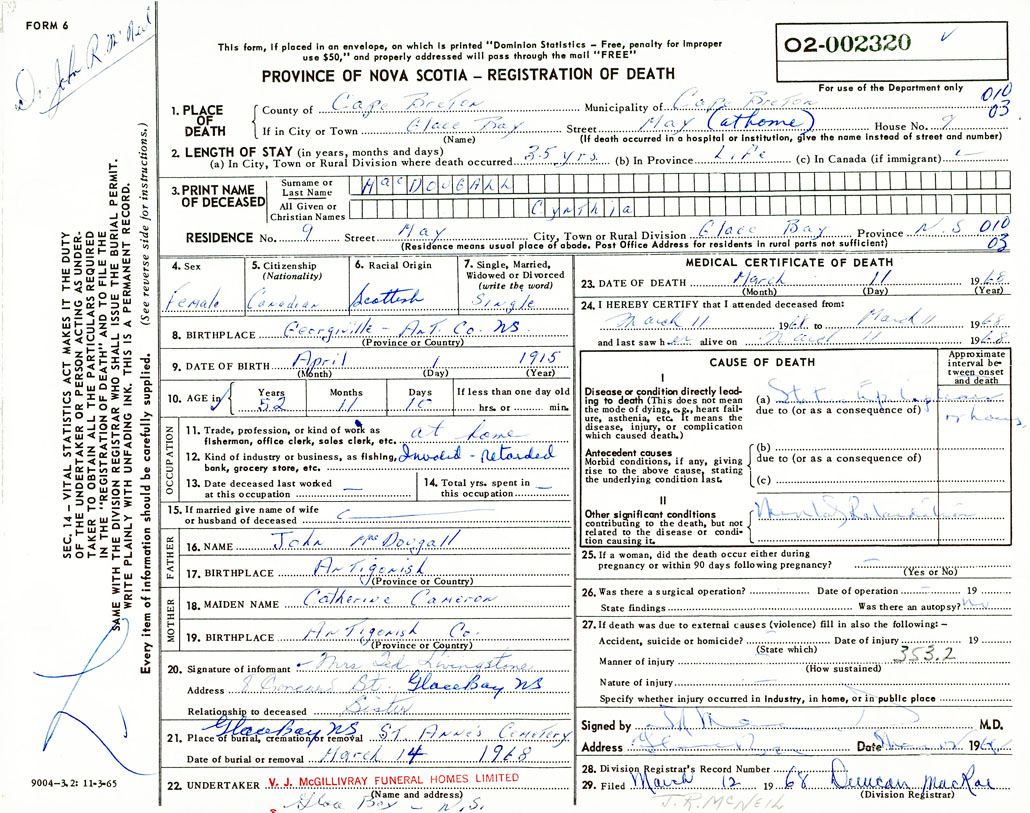 FORM 6
Dr. John R. McNeil
This form, if placed in an envelope, on which is printed "Dominion Statistics – Free, penalty for improper
use $50," and properly addressed will pass through the mail "FREE"
PROVINCE OF NOVA SCOTIA – REGISTRATION OF DEATH
O2-002320
For use of the Department only
010
03
1. PLACE OF DEATH
County of Cape Breton Municipality of Cape Breton
If in City or Town Glace Bay Street May (at home) House No. 9
(Name) (If death occurred in a hospital or institution, give the name instead of street and number)
2. LENGTH OF STAY (in years, months and days)
(a) In City, Town or Rural Division where death occurred 35 yrs. (b) In Province Life (c) In Canada (if immigrant)
3. PRINT NAME OF DECEASED
Surname or Last Name MacDougall
All Given or Christian Names Cynthia
RESIDENCE No. 9 Street May City, Town or Rural Division Glace Bay Province N.S 010
03
(Residence means usual place of abode. Post Office Address for residents in rural parts not sufficient)
4. Sex Female
5. Citizenship (Nationality) Canadian
6. Racial Origin Scottish
7. Single, Married, Widowed or Divorced (write the word) Single
8. BIRTHPLACE Georgiville - Ant. Co. NS
(Province or Country)
9. DATE OF BIRTH April 1 1915
(Month) (Day) (Year)
10. AGE Years 52 Months 11 Days 10 If less than one day old hrs. or min.
OCCUPATION
11. Trade, profession, or kind of work as fisherman, office clerk, sales clerk, etc. at home
12. Kind of industry or business, as fishing, bank, grocery store, etc. Invalid - Retarded
13. Date deceased last worked at this occupation
14. Total yrs. spent in this occupation
15. If married give name of wife or husband of deceased
FATHER
16. NAME John MacDougall
17. BIRTHPLACE Antigonish
(Province or Country)
MOTHER
18. MAIDEN NAME Catherine Cameron
19. BIRTHPLACE Antigonish Co.
(Province or Country)
20. Signature of informant Mrs Ted Livingstone
Address 8 St. Glace Bay NS
Relationship to deceased Sister
Glace Bay NS
21. Place of burial, cremation or removal St. Anne's Cemetery
Date of burial or removal March 14 1968
22. UNDERTAKER V. J. McGILLIVRAY FUNERAL HOMES LIMITED
(Name and address)
Glace Bay - N.S.
MEDICAL CERTIFICATE OF DEATH
23. DATE OF DEATH March 11 1968
(Month) (Day) (Year)
24. I HEREBY CERTIFY that I attended deceased from:
March 11 1968 to March 11 1968
and last saw her alive on March 11 1968
CAUSE OF DEATH
Approximate interval between onset and death
I
Disease or condition directly leading to death (This does not mean the mode of dying, e.g., heart failure, asthenia, etc. It means the disease, injury, or complication which caused death.)
(a) Stat. Epilepticus hours
due to (or as a consequence of)
Antecedent causes
Morbid conditions, if any, giving rise to the above cause, stating the underlying condition last.
(b)
due to (or as a consequence of)
(c)
II
Other significant conditions contributing to the death, but not related to the disease or condition causing it.
Mental Retardation
25. If a woman, did the death occur either during pregnancy or within 90 days following pregnancy?
(Yes or No)
26. Was there a surgical operation? Date of operation 19
State findings Was there an autopsy? No
27. If death was due to external causes (violence) fill in also the following: –
Accident, suicide or homicide? Date of injury 19
(State which) 353.2
Manner of injury
(How sustained)
Nature of injury
Specify whether injury occurred in industry, in home, or in public place
Signed by M.D.
Address Date 196
28. Division Registrar's Record Number
29. Filed March 12 1968 Duncan MacRae
(Division Registrar)
J.R. McNEIL
SEC. 14 – VITAL STATISTICS ACT MAKES IT THE DUTY
OF THE UNDERTAKER OR PERSON ACTING AS UNDER-
TAKER TO OBTAIN ALL THE PARTICULARS REQUIRED
IN THE "REGISTRATION OF DEATH" AND TO FILE THE
SAME WITH THE DIVISION REGISTRAR WHO SHALL ISSUE THE BURIAL PERMIT.
WRITE PLAINLY WITH UNFADING INK. THIS IS A PERMANENT RECORD.
Every item of information should be carefully supplied. (See reverse side for instructions.)
9004–3.2: 11-3-65